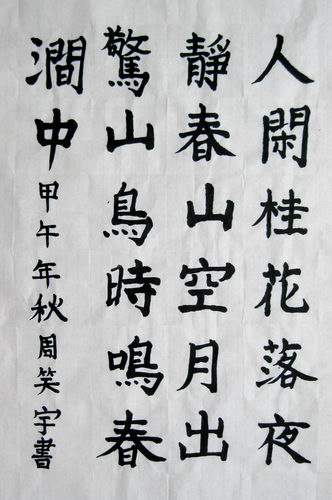 人閑桂花落夜
靜春山空月出
驚山鳥時鳴春
澗中甲午年秋周笑宇書